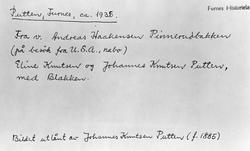 Furnes Historiela
Putten, Furnes, ca. 1935.
Fra v. Andreas Haakensen Pinnerudbakken
(på besök fra U.S.A., nebo)
Eline Knutsen og Johannes Knutsen Putten,
med Blakken.
Bildet utlånt av Johannes Knutsen Putten (f. 1885)